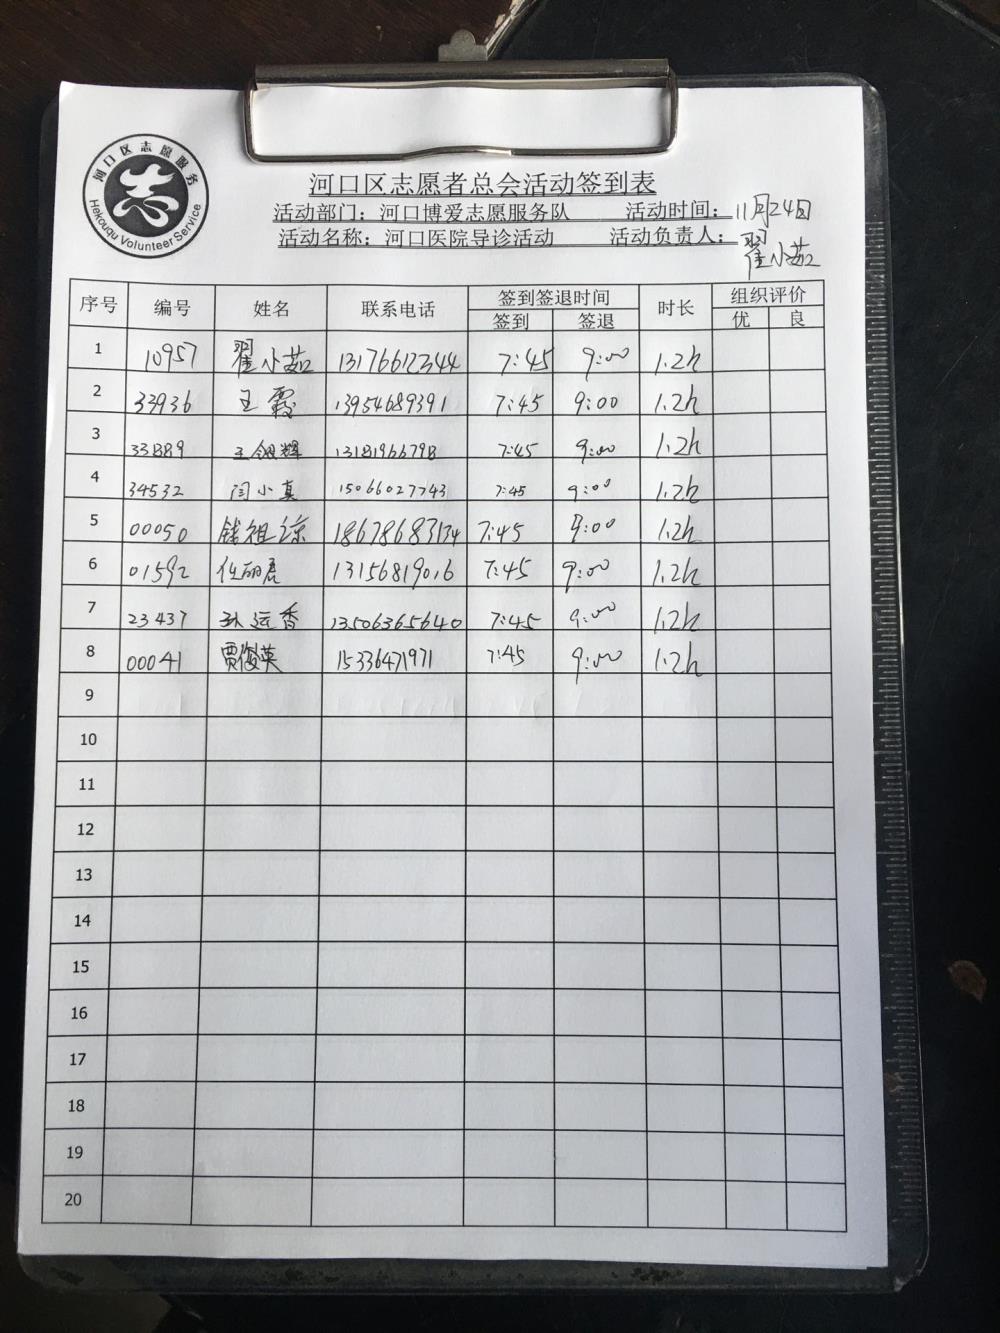 河口区志愿服务
Hekouqu Volunteer Service
志
河口区志愿者总会活动签到表
活动部门：河口博爱志愿服务队 活动时间：11月24日
活动名称：河口医院导诊活动 活动负责人：翟小茹
序号 编号 姓名 联系电话 签到签退时间 时长 组织评价
签到 签退 优 良
1 10957 翟小茹 13176612344 7:45 9:00 1.2h
2 33936 王霞 13954689391 7:45 9:00 1.2h
3 33889 王 辉 13181966798 7:45 9:00 1.2h
4 34532 闫小真 15066027743 7:45 9:00 1.2h
5 00050 钱祖 18678683134 7:45 9:00 1.2h
6 01592 任丽 13156819016 7:45 9:00 1.2h
7 23437 孙运香 13506365640 7:45 9:00 1.2h
8 00041 贾俊英 15336471971 7:45 9:00 1.2h
9
10
11
12
13
14
15
16
17
18
19
20